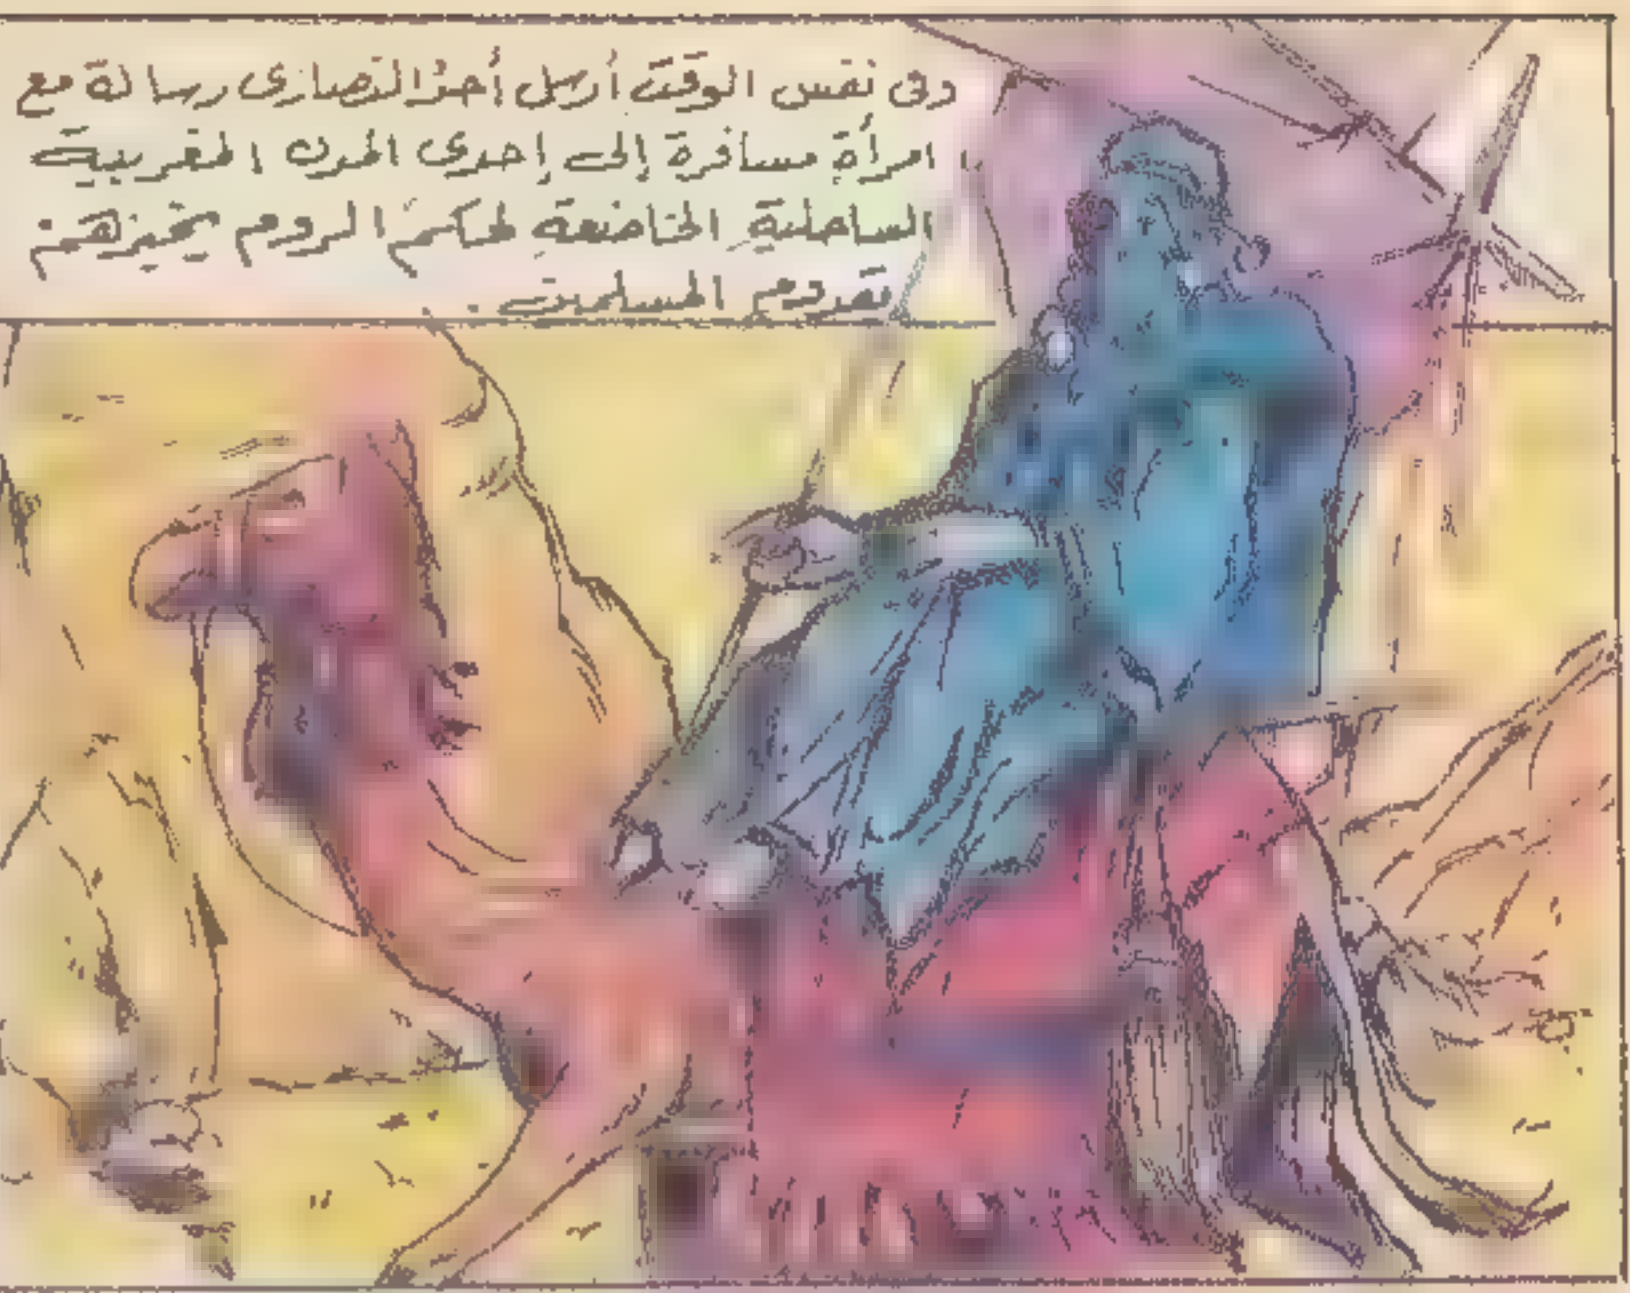 وفى نفس الوقت أرسل أحد النصارى رسالة مع
امرأة مسافرة إلى إحدى المدن المغربية
الساحلية الخاضعة لحكم الروم يخبرهم
بقدوم المسلمين .